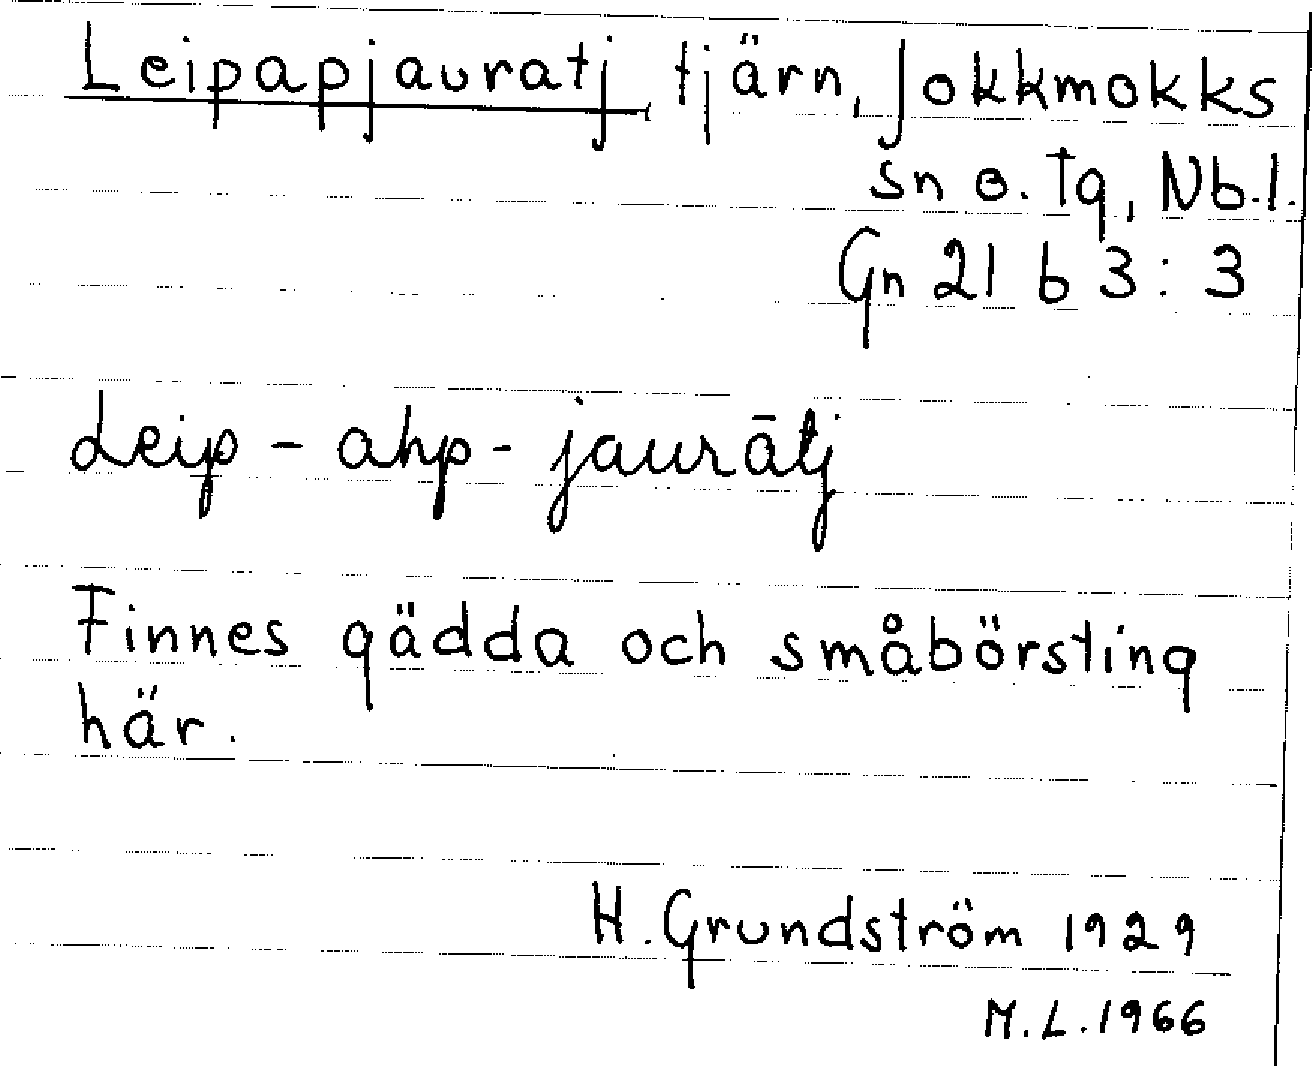 Leipapjauratj tjärn, Jokkmokks
sn o. tg, Nb.l.
Gn 21 b 3:3
Leip - ahp - jaurātj
Finnes gädda och småbörsting
här.
H. Grundström 1929
M.L. 1966